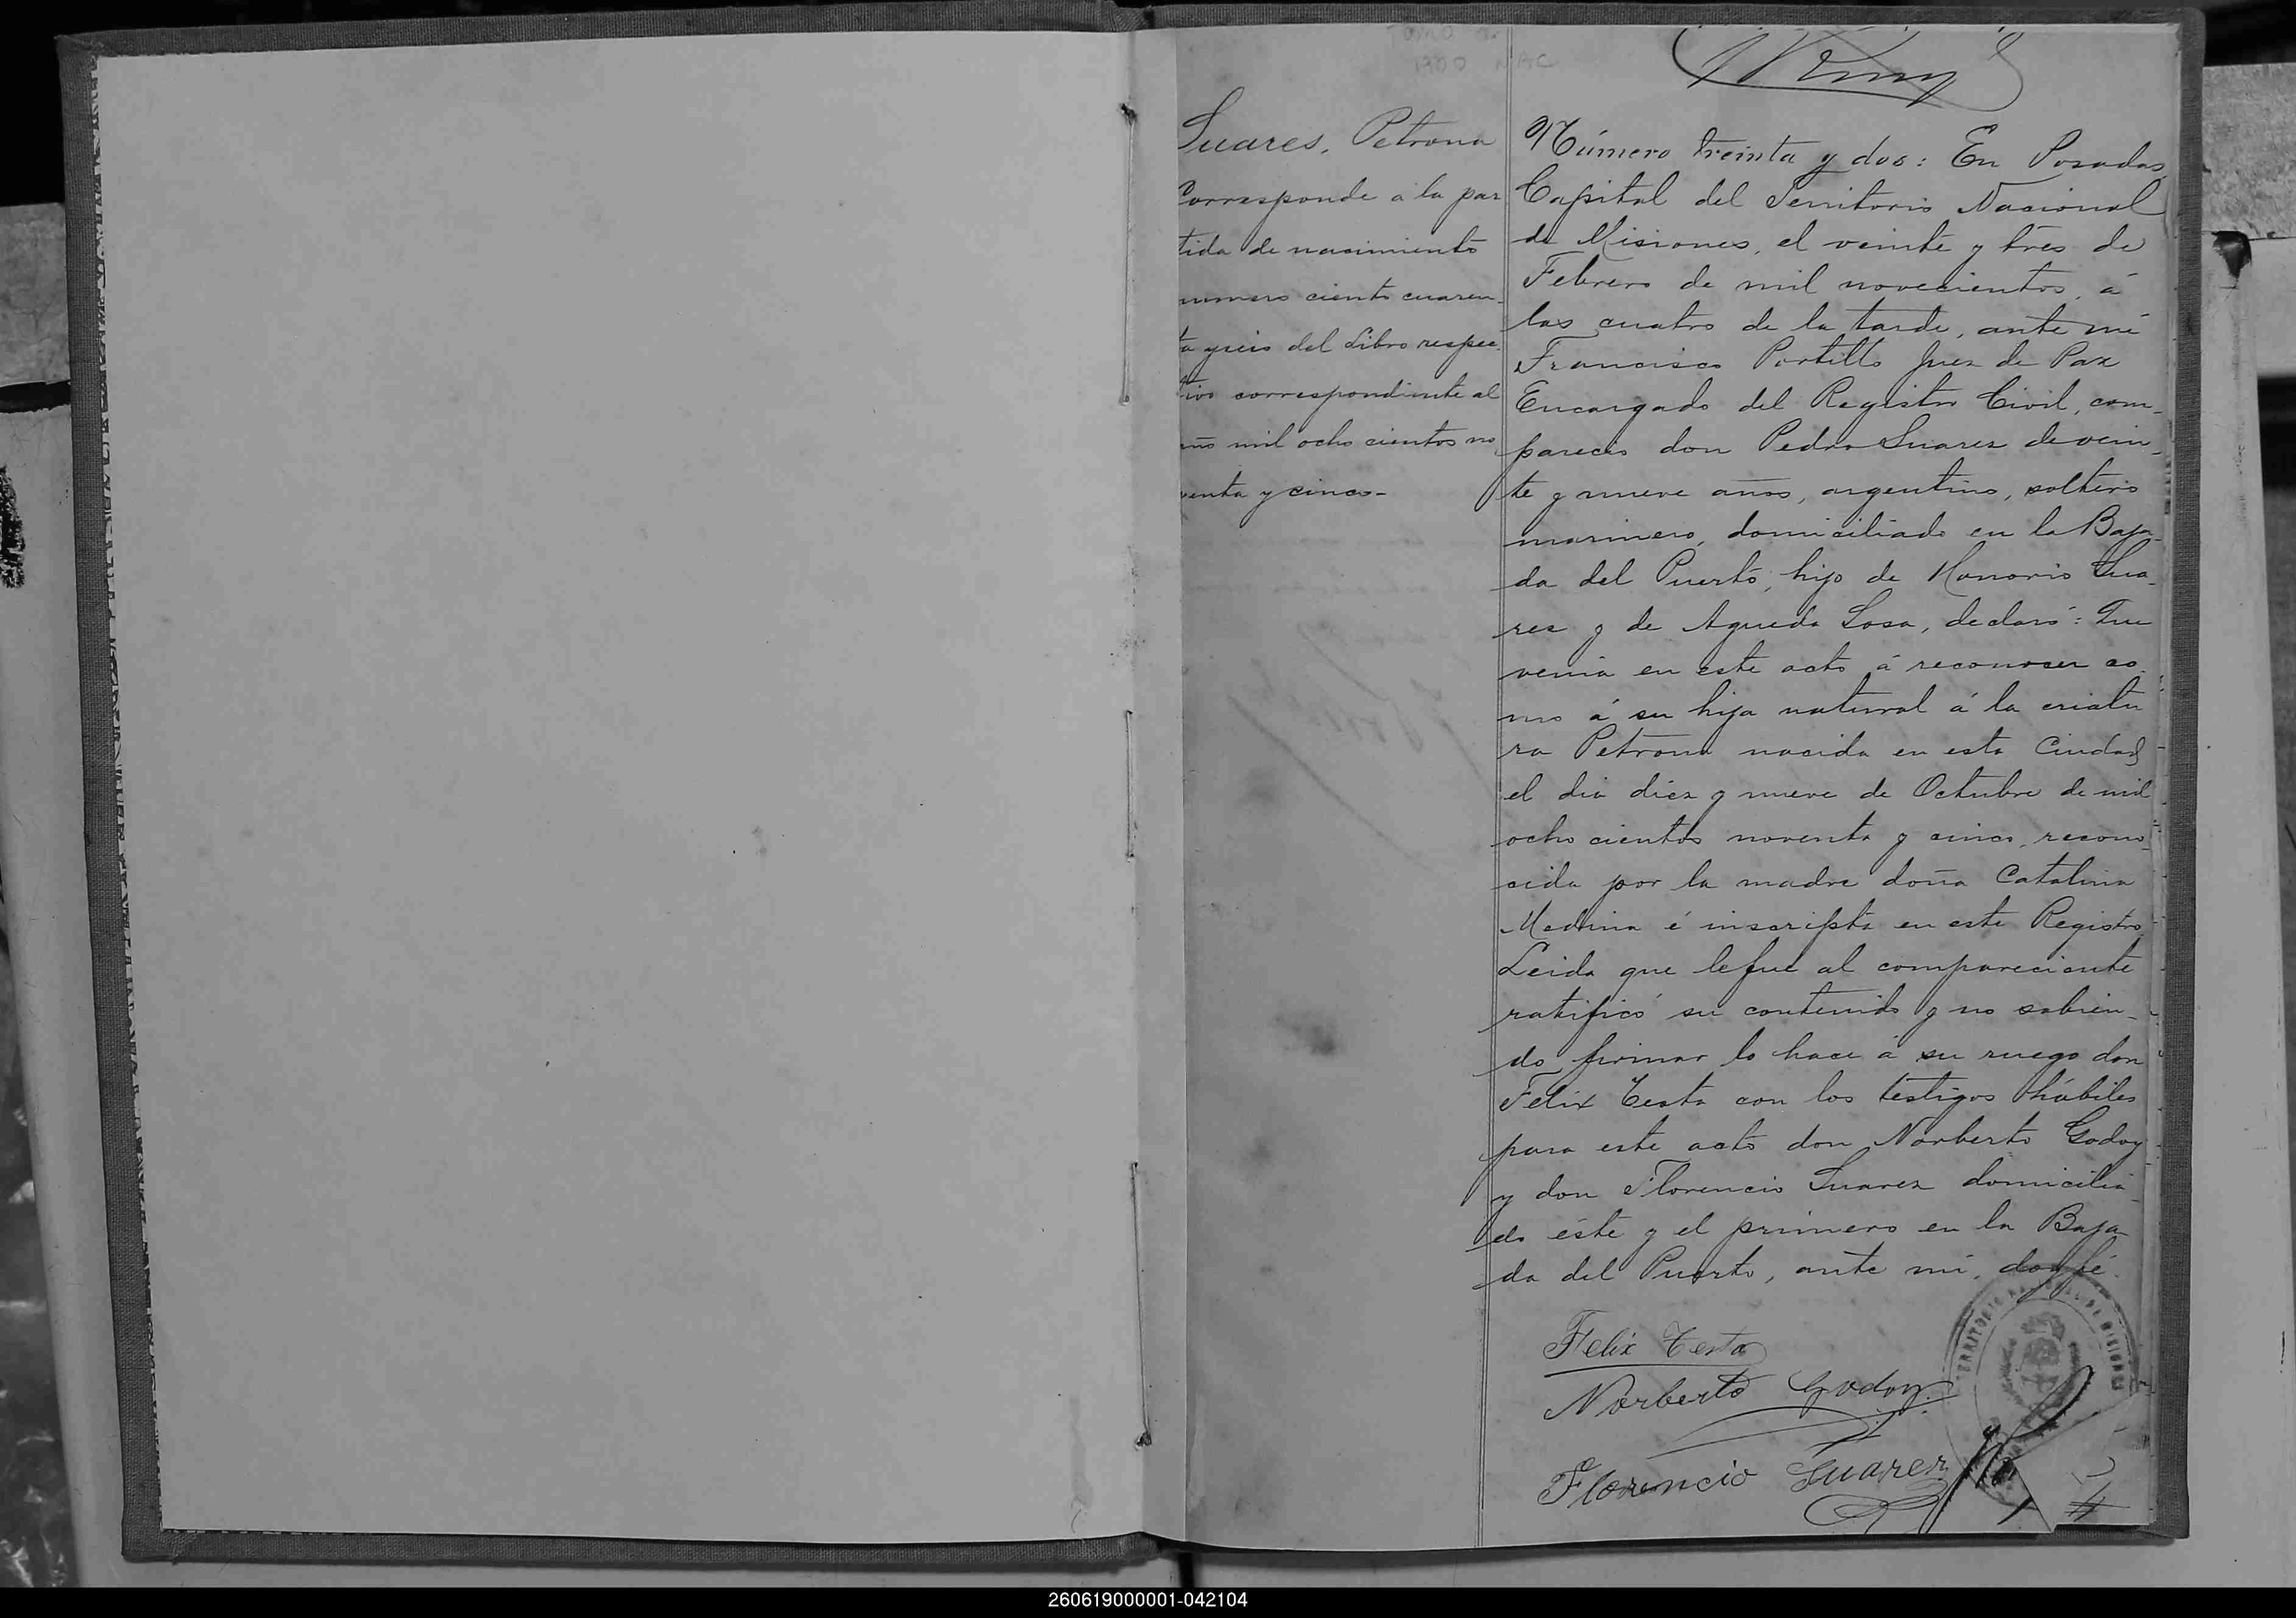 1900 NAC
Suares, Petrona
Corresponde a la par
tida de nacimiento
numero ciento cuaren-
ta y seis del Libro respec-
tivo correspondiente al
año mil ocho cientos no
venta y cinco-
Número treinta y dos: En Posadas,
Capital del Territorio Nacional
de Misiones, el veinte y tres de
Febrero de mil novecientos, á
las cuatro de la tarde, ante mi
Francisco Portillo Juez de Paz
Encargado del Registro Civil, com-
pareció don Pedro Suarez de vein-
te y nueve años, argentino, soltero
marinero, domiciliado en la Baja-
da del Puerto, hijo de Honorio Sua-
rez y de Agueda Sosa, declaró: Que
venia en este acto á reconocer co-
mo á su hija natural á la criatu
ra Petrona nacida en esta Ciudad
el dia diez y nueve de Octubre de mil
ocho cientos noventa y cinco, recono-
cida por la madre doña Catalina
Medina é inscripta en este Registro.
Leida que le fué al compareciente
ratificó su contenido y no sabien-
do firmar lo hace á su ruego don
Felix Testa con los testigos hábiles
para este acto don Norberto Godoy
y don Florencio Suarez domicilia-
do éste y el primero en la Baja-
da del Puerto, ante mi, doy fé.
Felix Testa
Norberto Godoy
Florencio Suarez
TERRITORIO NACIONAL DE MISIONES
260619000001-042104